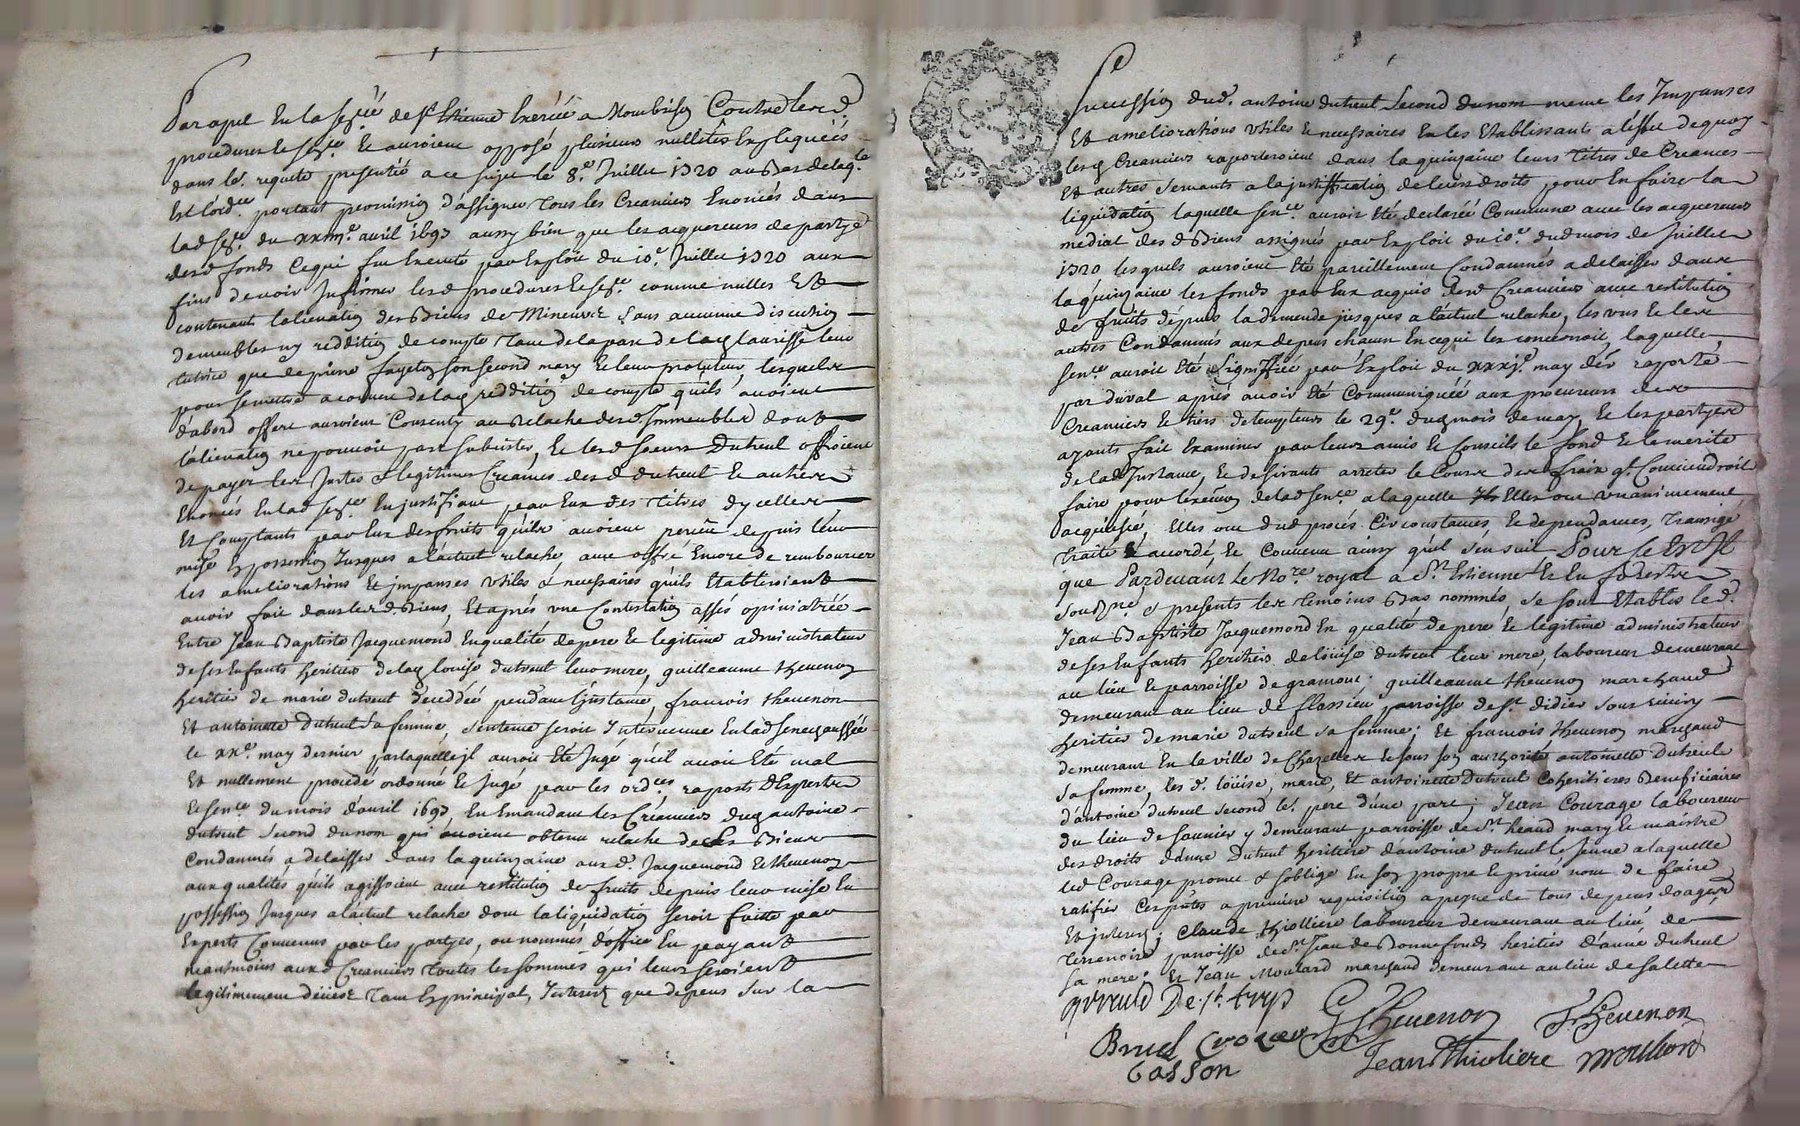 Par apel En la Sez.ée de S.t Etienne Exercée a Monbrison Contre lesd.
procedures Et auroient opposé plusieurs nullités Expliquées
dans le d. requete presentée a ce sujet le 8.e Juillet 1720 au bas de laq.le
Est l'ord.ce portant permission d'assigner tous les Creanciers Enoncés dans
lad. du xxiii.e avril 1693 aussy bien que les acquereurs de partye
desd. fonds Ce qui fut Executé par Exploit du 10.e Juillet 1720 aux
fins de voir lesd. procedures comme nulles Et
contenant l'alienation des Biens de Mineurs sans aucune discution
de meubles ny reddition de compte tant de la part de lad. laurisse leur
tutrice que de pierre fayeton son second mary Et leur protuteur, lesquels
pour se mettre a couvert de lad. reddition de compte qu'ils avoient
d'abord offert auroient Consenty au Relache desd. Immeubles dont
l'alienation ne pouvoit pas subsister, Et lesd. soeurs Duteul offroient
de payer les Justes & legitimes Creances desd. duteul Et autres
Enoncés En lad. En justifiant par Eux des titres d'ycelles
Et Comptants par Eux des fruits qu'ils avoient perçeu depuis leur
mise En possession Jusques a l'actuel relache, aux offre Encore de rembourcer
les ameliorations Et jmpanses Utiles & necessaires qu'ils Etabliroient
avoir fait dans lesd. Biens, Et aprés une Contestation assés opiniatrée
Entre Jean Baptiste Jacquemond En qualité de pere Et legitime administrateur
de ses Enfants heritiers de lad. louise duteul leur mere, guilleaume thevenon
heritier de marie duteul deceddée pendant l'jnstance, francois thevenon
Et antoinette Duteul sa femme, sentence seroit Intervenue En lad. senechaussée
le xx.e may dernier par laquelle jl auroit Eté Jugé qu'il avoit Eté mal
Et nullement procedé ordonné Et Jugé par les ord.ces raports d'Experts
Et sen.ce du mois d'avril 1693, En Emandant les Créanciers dud. antoine
duteul Second du nom qui avoient obtenu relache de ses Biens
Condamnés a delaisser dans la quinzaine aux d. Jacquemond Et thevenon
aux qualités qu'ils agissoient avec restitution de fruits depuis leur mise En
possession Jusques a l'actuel relache dont la liquidation seroit faitte par
Experts Convenus par les partyes, ou nommés d'office En payant
neantmoins aux d. Creanciers toutes les sommes qui leur seroient
legitimement deües tant En principal, Interets que depens sur la
Succession dud. antoine duteul Second du nom meme les Impanses
Et ameliorations utiles & necessaires En les Etablissants a l'effet de quoy
lesd. Creanciers raporteroient dans la quinzaine leurs titres de Creances
Et autres servants a la justiffication de leurs droits pour En faire la
liquidation laquelle sen.ce auroit Eté declarée Commune avec les acquereurs
mediat des d. Biens assignés par Exploit du 10.e dud. mois de Juillet
1720 lesquels auroient Eté pareillement Condamnés a delaisser dans
la quinzaine les fonds par Eux acquis desd. Creanciers avec restitution
de fruits depuis la demende jusques a l'actuel relache, les uns Et les
autres Condamnés aux depens chacun En ce qui les concernoit, laquelle
sen.ce auroit Eté signiffiée par Exploit du xxxj.e may dér raporté
par duval aprés avoir Eté Communiquée aux procureurs des
Creanciers Et tiers detempteurs le 29.e dud. mois de may, Et les partyes
ayants fait Examiner par leurs amis Et Conseils le fond Et le merite
de lad. Instance, Et desirants arreter le Cours des fraix q.l Conviendroit
faire pour l'execu.on de lad. sen.ce a laquelle Elles ont unanimement
acquiescé, Elles ont dud. procés Circonstances Et dependances, transigé
traité & accordé, Et Convenu ainsy qu'il s'en suit Pour se Est Jl
que Pardevant Le No.re royal a S.t Etienne En forest
soubz.né & presents les temoins Bas nommés, se sont Etablis le d.
Jean Baptiste Jacquemond En qualité de pere Et legitime administrateur
de ses Enfants heritiers de loüise duteul leur mere, laboureur demeurant
au lieu Et parroisse de gramont; guilleaume thevenon marchand
demeurant au lieu de flassieu parroisse de S.t didier sous riviry
heritier de marie duteul sa femme; Et francois thevenon marchand
demeurant En la ville de Chazelles Et sous son authorité antoinette Duteul
sa femme, les d. loüise, marie, Et antoinette Duteul Coheritieres Beneficiaires
d'antoine duteul second le.r pere d'une part; Jean Courage laboureur
du lieu de saunier y demeurant parroisse de S.t heand mary Et maistre
des droits d'anne Duteul heritiere d'antoine duteul le Jeune a laquelle
led. Courage promet & s'oblige En son propre Et privé nom de faire
ratifier Ces pntes a premiere requisition a peyne de tous depens domages
Et jnterets; Claude thiolliere laboureur demeurant au lieu de
terrenoire parroisse de S.t Jean de Bonnefonds heritier d'anne duteul
sa mere; Et Jean Moulard marchand demeurant au lieu de salette
G Thevenon
F Thevenon
Jean Thioliere